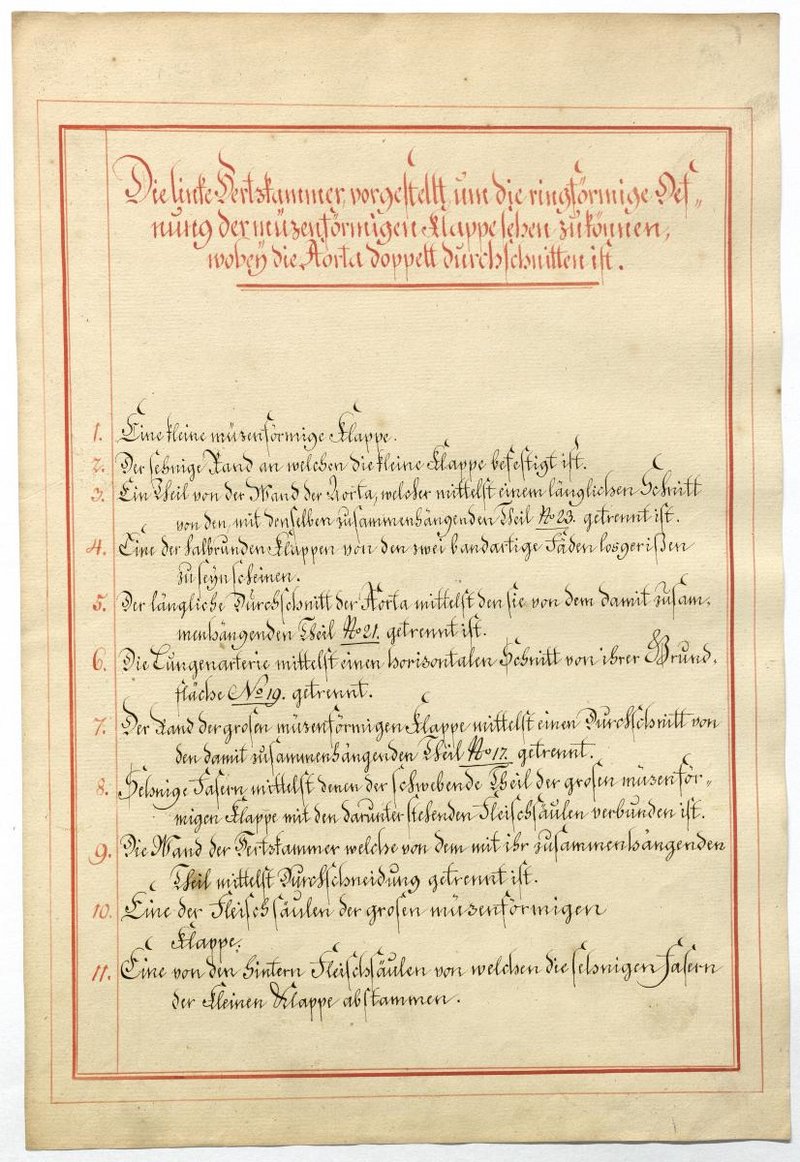 Die linke Hertzkammer, vorgestellt, um die ringförmige Oef-
nung der müzenförmigen Klappe sehen zu können,
wobey die Aorta doppelt durchschnitten ist.
1. Eine kleine müzenförmige Klappe.
2. Der sehnige Rand an welchen die kleine Klappe befestigt ist.
3. Ein Theil von der Wand der Aorta, welcher mittelst einem länglichen Schnitt
von den mit denselben zusammenhängenden Theil No 23. getrennt ist.
4. Eine der halbrunden Klappen von den zwei bandartige Fäden losgerißen
zu seyn scheinen.
5. Der längliche Durchschnitt der Aorta mittelst den sie von dem damit zusam-
menhängenden Theil No 21. getrennt ist.
6. Die Lungenarterie mittelst einen horizontalen Schnitt von ihrer Grund-
fläche No 19. getrennt.
7. Der Rand der grosen müzenförmigen Klappe mittelst einen Durchschnitt von
den damit zusammenhängenden Theil No 17. getrennt.
8. Sehnige Fasern, mittelst denen der schwebende Theil der grosen müzenför-
migen Klappe mit den darunter stehenden Fleischsäulen verbunden ist.
9. Die Wand der Hertzkammer welche von dem mit ihr zusammenhängenden
Theil mittelst Durchschneidung getrennt ist.
10. Eine der Fleischsäulen der grosen müzenförmigen
Klappe.
11. Eine von den hintern Fleischsäulen von welchen die sehnigen Fasern
der kleinen Klappe abstammen.